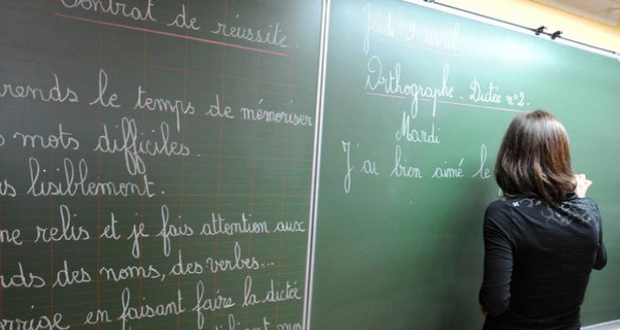 Contrat de réussite.
rends le temps de mémoriser
mots difficiles.
lisiblement.
me relis et je fais attention aux
rds des noms, des verbes...
rrige en faisant faire la dictée
Jeudi avril
Orthographe. Dictée n°2.
Mardi
J'ai bien aimé le